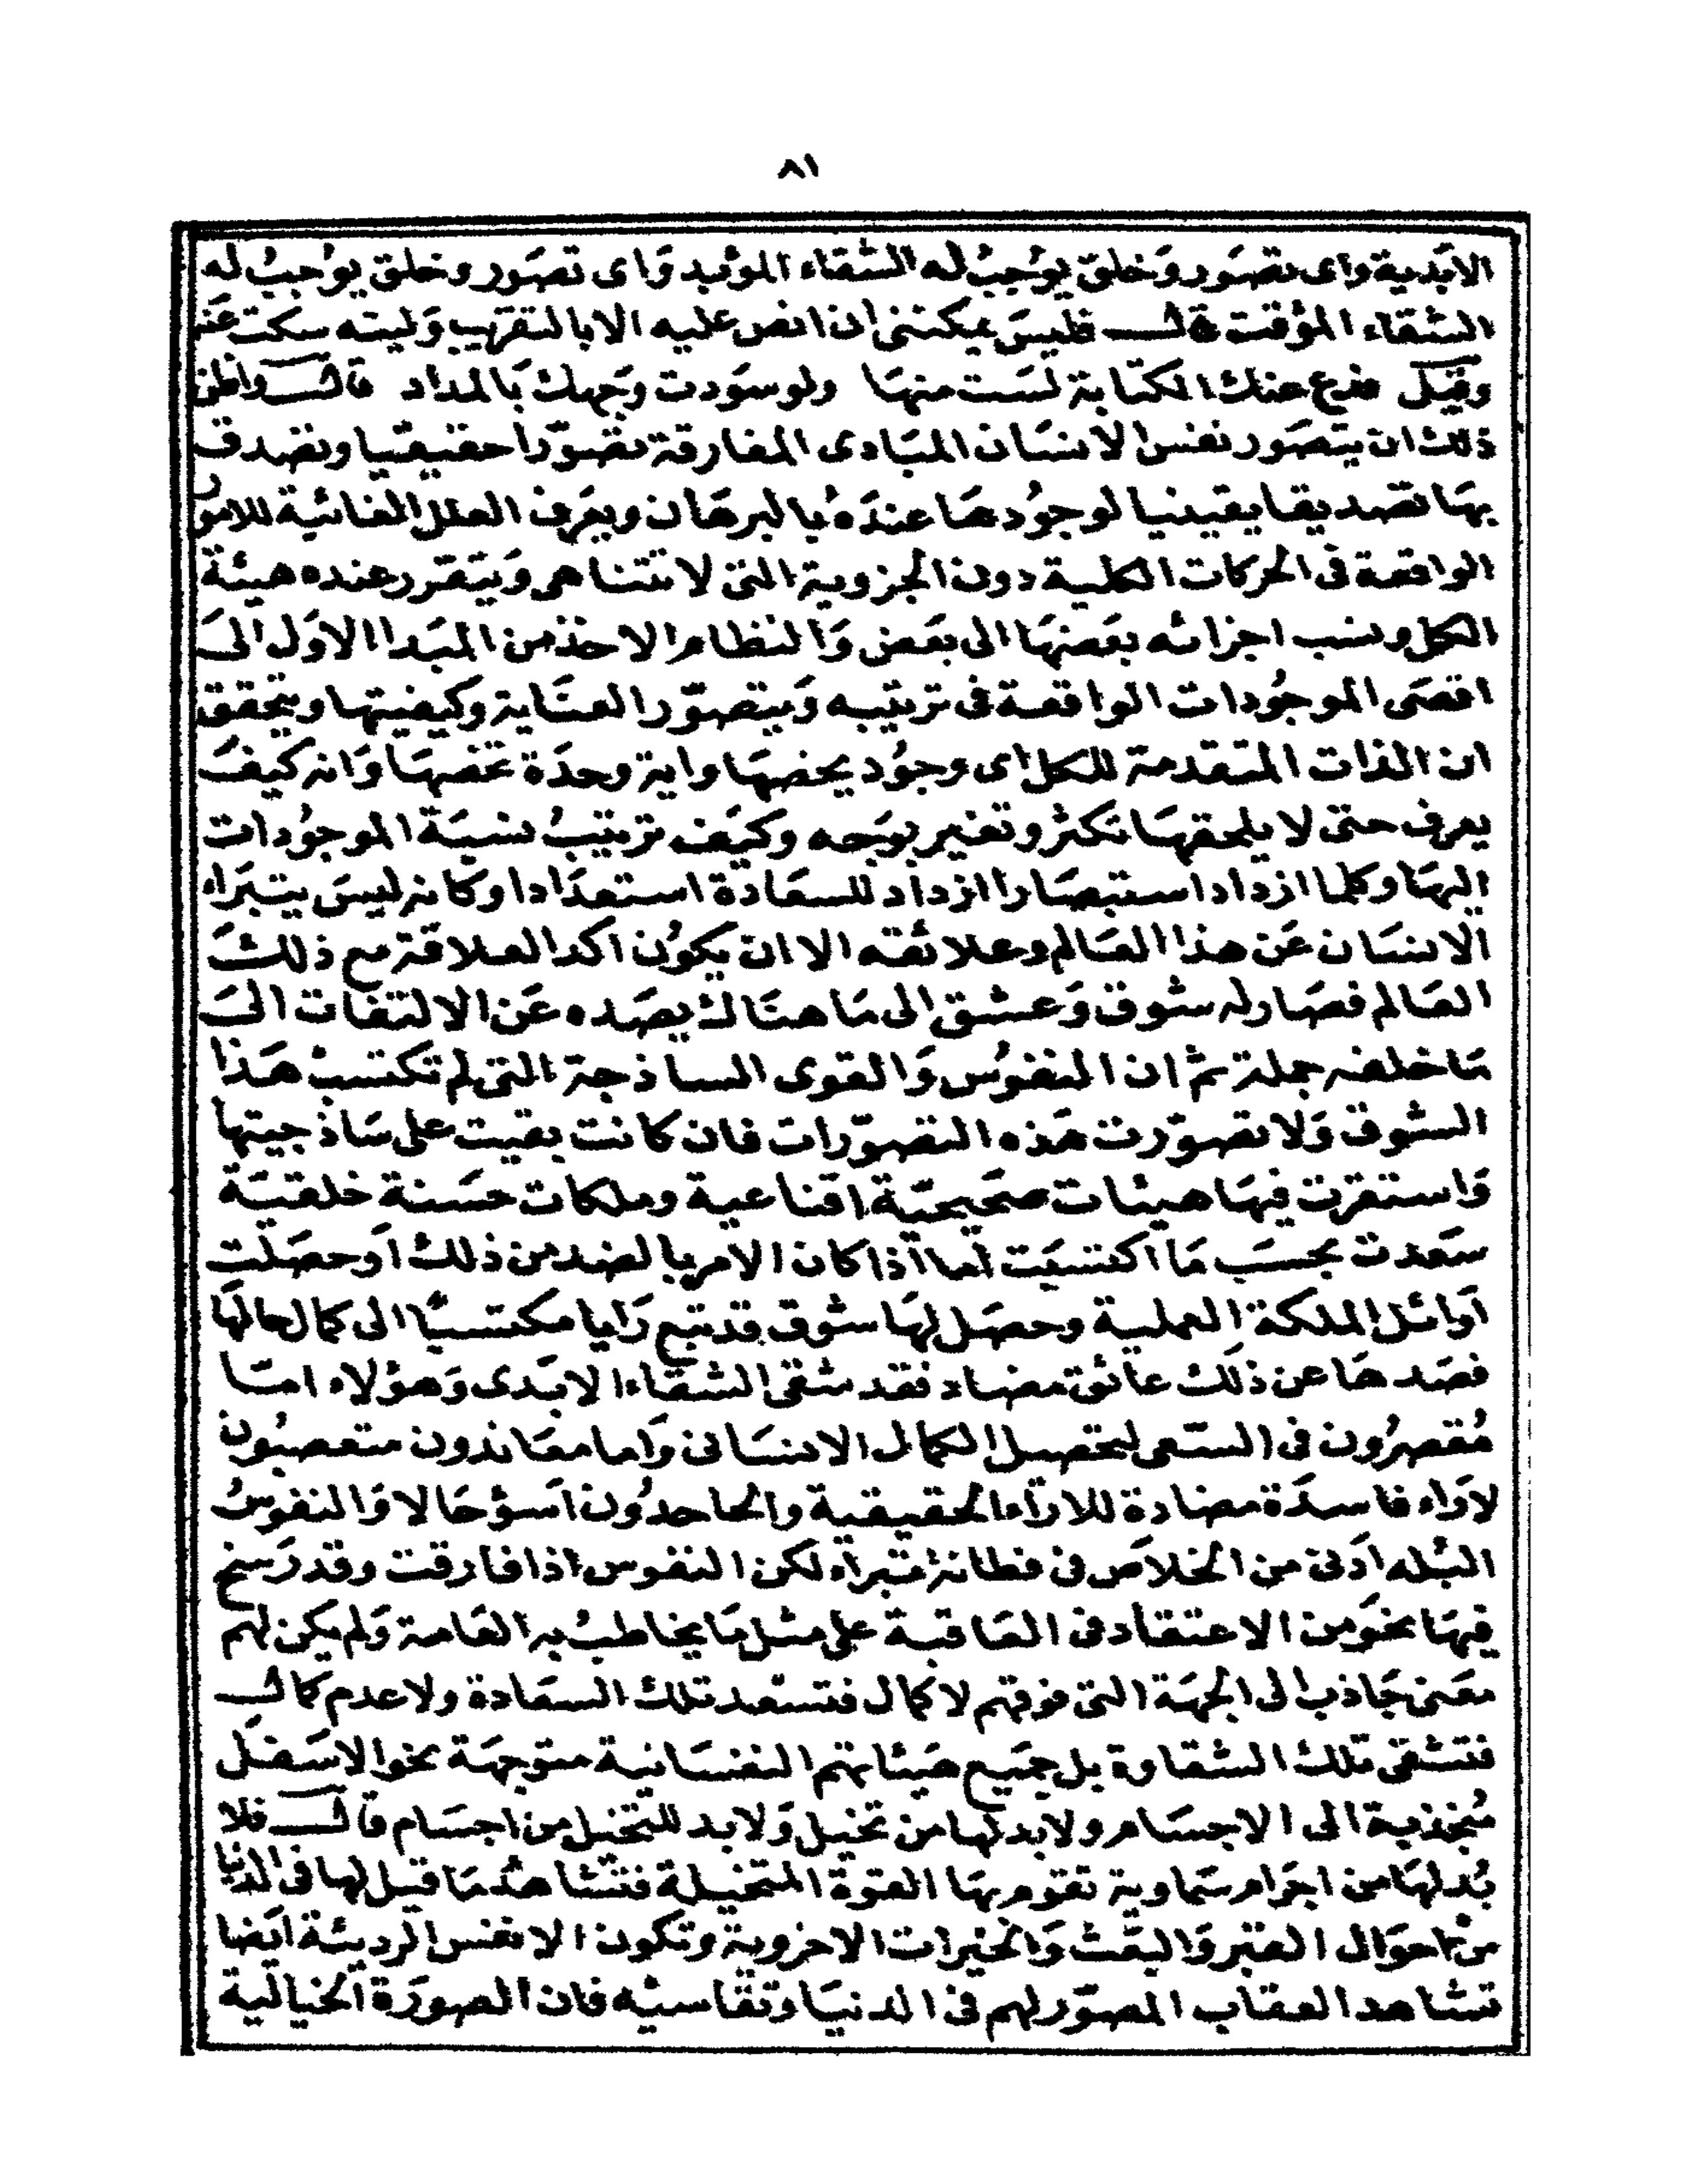 ٨١
الابدية واى تصور وخلق يوجب له الشقاء المؤبد واى تصور وخلق يوجب له
الشقاء المؤقت قال فليس يمكننى ان انص عليه الا بالتقريب وليته سكت عنه
وقيل فدع عنك الكتابة لست منها ولو سودت وجهك بالمداد قال واظن
ذلك ان يتصور نفس الانسان المبادى المفارقة تصورا حقيقيا وتصدق
بها تصديقا يقينيا لوجودها عنده بالبرهان ويعرف العلل الغائية للامور
الواقعة فى الحركات الكلية دون الجزوية التى لا تتناهى ويتقرر عنده هيئة
الكل ونسب اجزائه بعضها الى بعض والنظام الاخذ من المبدا الاول الى
اقصى الموجودات الواقعة فى ترتيبه ويتصور العناية وكيفيتها ويتحقق
ان الذات المتقدمة للكل اى وجود يخصها واية وحدة تخصها وانه كيف
يعرف حتى لا يلحقها تكثر وتغير بوجه وكيف ترتيب نسبة الموجودات
اليها وكلما ازداد استبصارا ازداد للسعادة استعدادا وكانه ليس يتبراء
الانسان عن هذا العالم وعلائقه الا ان يكون اكد العلاقة مع ذلك
العالم فصار له شوق وعشق الى ما هناك يصده عن الالتفات الى
ما خلفه جملة ثم ان النفوس والقوى الساذجة التى لم تكتسب هذا
الشوق ولا تصورت هذه التصورات فان كانت بقيت على ساذجيتها
واستقرت فيها هيئات صحيحية اقناعية وملكات حسنة خلقية
سعدت بحسب ما اكتسبت اما اذا كان الامر بالضد من ذلك او حصلت
اوائل الملكة العملية وحصل لها شوق قد تبع رايا مكتسبا الى كمال حالها
فصدها عن ذلك عائق مضاد فقد شقى الشقاء الابدى وهؤلاء اما
مقصرون فى السعى لتحصيل الكمال الانسانى واما معاندون متعصبون
لاراء فاسدة مضادة للاراء الحقيقية والجاحدون اسؤ حالا والنفوس
البله ادنى من الخلاص فى فطانة متبراء لكن النفوس اذا فارقت وقد رسخ
فيها نحو من الاعتقاد فى العاقبة على مثل ما يخاطب به العامة ولم يكن لهم
معنى جاذب الى الجهة التى فوقهم لا كمال فتسعد تلك السعادة ولا عدم كمال
فتشقى تلك الشقاوة بل جميع هيئاتهم النفسانية متوجهة نحو الاسفل
منجذبة الى الاجسام ولا بد لها من تخيل ولا بد للتخيل من اجسام قال فلا
بد لها من اجرام سماوية تقوم بها القوة المتخيلة فتشاهد ما قيل لها فى الدنيا
من احوال القبر والبعث والخيرات الاخروية وتكون الانفس الرديئة ايضا
تشاهد العقاب المصور لهم فى الدنيا وتقاسيه فان الصورة الخيالية